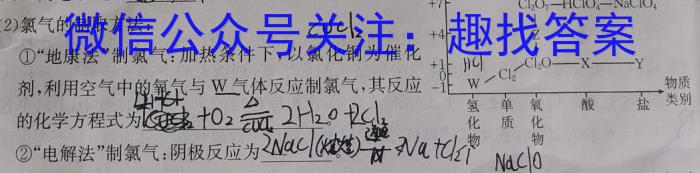 (2)氯气的制取方法:
CuCl2
微信公众号关注:趣找答案
①“地康法”制氯气:加热条件下,以氯化铜为催化
剂,利用空气中的氧气与 W 气体反应制氯气,其反应
的化学方程式为 4HCl +O2 △ CuCl2 2H2O+2Cl2
②“电解法”制氯气:阴极反应为 2NaCl 2Na+Cl2↑
+7 Cl2O7—HClO4—NaClO4
+4 Z
+1 HCl Cl2O—X—Y
0 Cl2
−1 W
物质类别
氢化物 单质 氧化物 酸 盐
NaClO